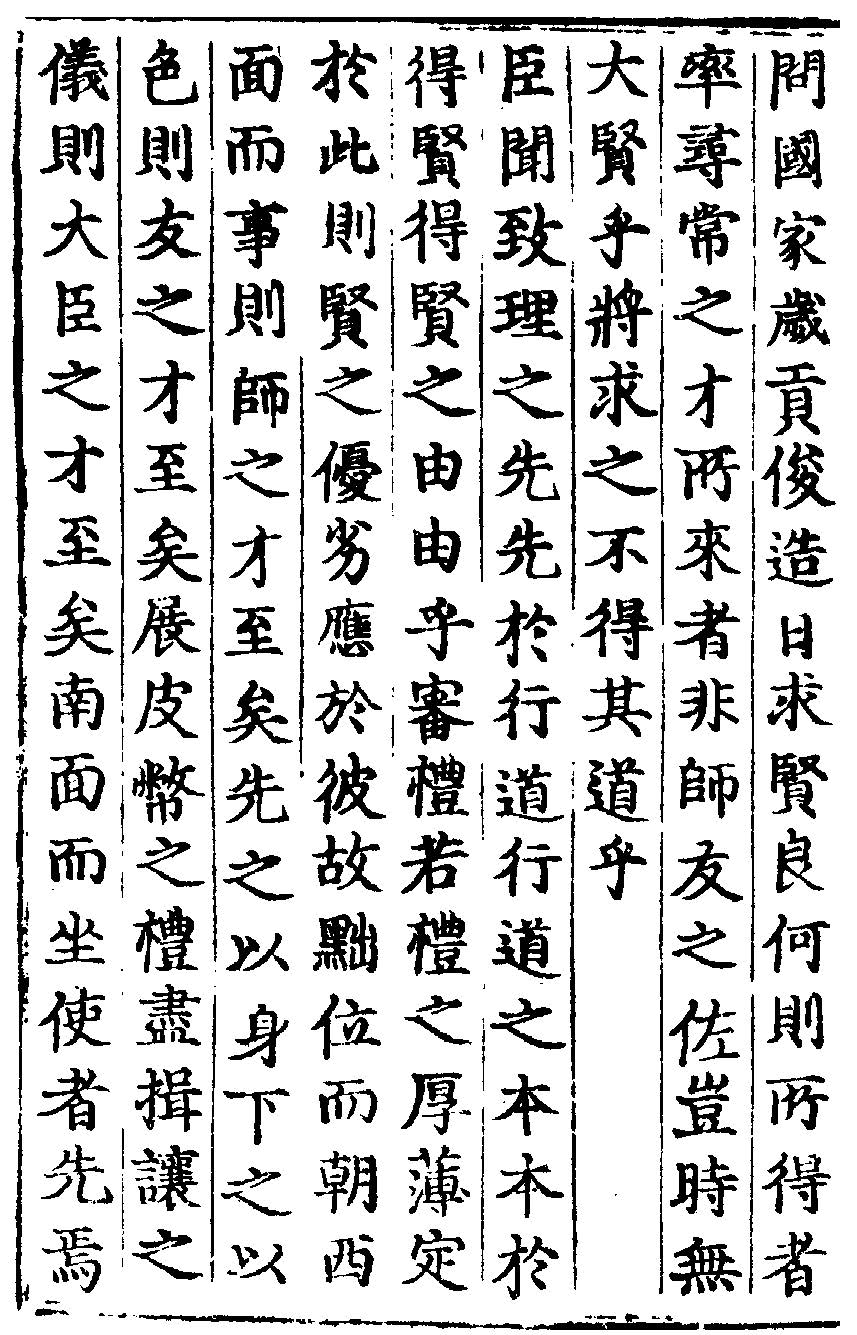 問國家歲貢俊造日求賢良何則所得者
率尋常之才所來者非師友之佐豈時無
大賢乎將求之不得其道乎
臣聞致理之先先於行道行道之本本於
得賢得賢之由由乎審禮若禮之厚薄定
於此則賢之優劣應於彼故黜位而朝西
面而事則師之才至矣先之以身下之以
色則友之才至矣展皮幣之禮盡揖讓之
儀則大臣之才至矣南面而坐使者先焉